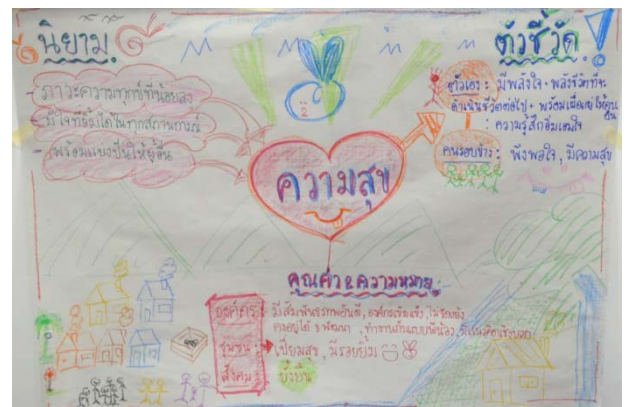 นิยาม
- ภาวะความทุกข์ที่น้อยลง
- มีใจที่นิ่งได้ในทุกสถานการณ์
- พร้อมแบ่งปันให้ผู้อื่น
ความสุข
ตัวชี้วัด
ตัวเอง : มีพลังใจ + พลังชีวิตที่จะ
ดำเนินชีวิตต่อไป + พร้อมเผื่อแผ่
: ความรู้สึกอิ่มเอมใจ
คนรอบข้าง : พึงพอใจ, มีความสุข
คุณค่า & ความหมาย
องค์กร : มีสัมพันธภาพอันดี, องค์กรเข้มแข็ง, ไม่ขัดแย้ง
คงอยู่ได้ & พัฒนา, ทำงานกันแบบพี่น้อง,
ชุมชน : เปี่ยมสุข, มีรอยยิ้ม
สังคม : ยั่งยืน